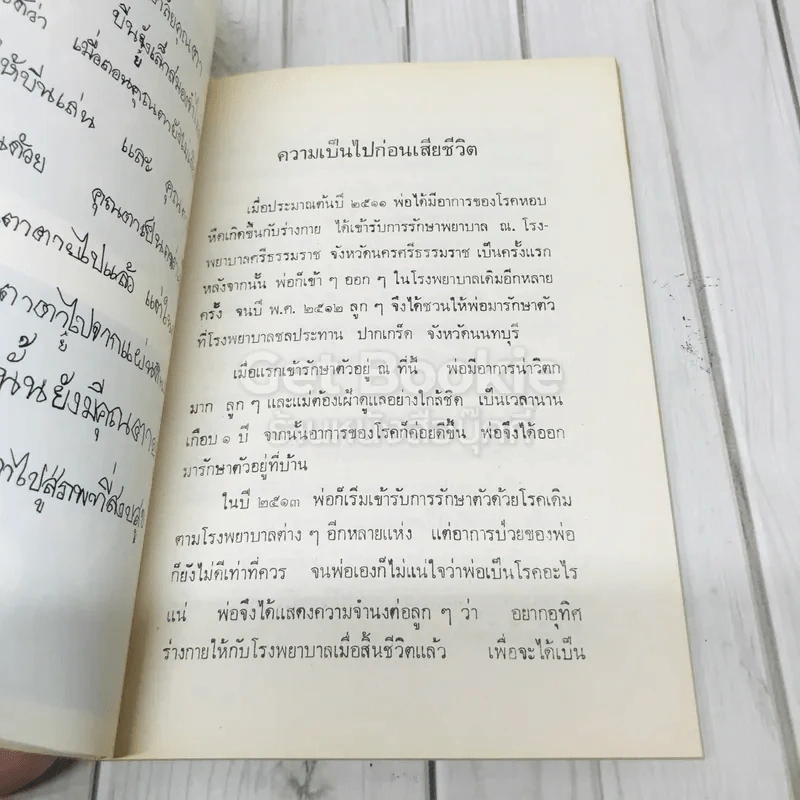 บีนจึงเสีย
เมื่อตอนคุณตายัง
ให้บีนเล่น และ คุณ
นด้วย คุณตาเป็น
ตาตายไปแล้ว แต่ใน
ตาตาไปจากแผ่น
นั้นยังมีคุณตา
ที่ไปสู่สภาพที่สงบสุข
ความเป็นไปก่อนเสียชีวิต
เมื่อประมาณต้นปี ๒๕๑๑ พ่อได้มีอาการของโรคหอบ
หืดเกิดขึ้นกับร่างกาย ได้เข้ารับการรักษาพยาบาล ณ. โรง-
พยาบาลศรีธรรมราช จังหวัดนครศรีธรรมราช เป็นครั้งแรก
หลังจากนั้น พ่อก็เข้า ๆ ออก ๆ ในโรงพยาบาลเดิมอีกหลาย
ครั้ง จนปี พ.ศ. ๒๕๑๒ ลูก ๆ จึงได้ชวนให้พ่อมารักษาตัว
ที่โรงพยาบาลชลประทาน ปากเกร็ด จังหวัดนนทบุรี
เมื่อแรกเข้ารักษาตัวอยู่ ณ ที่นี้ พ่อมีอาการน่าวิตก
มาก ลูก ๆ และแม่ต้องเฝ้าดูแลอย่างใกล้ชิด เป็นเวลานาน
เกือบ ๑ ปี จากนั้นอาการของโรคก็ค่อยดีขึ้น พ่อจึงได้ออก
มารักษาตัวอยู่ที่บ้าน
ในปี ๒๕๑๓ พ่อก็เริ่มเข้ารับการรักษาตัวด้วยโรคเดิม
ตามโรงพยาบาลต่าง ๆ อีกหลายแห่ง แต่อาการป่วยของพ่อ
ก็ยังไม่ดีเท่าที่ควร จนพ่อเองก็ไม่แน่ใจว่าพ่อเป็นโรคอะไร
แน่ พ่อจึงได้แสดงความจำนงต่อลูก ๆ ว่า อยากอุทิศ
ร่างกายให้กับโรงพยาบาลเมื่อสิ้นชีวิตแล้ว เพื่อจะได้เป็น
Get Bookie
ร้านหนังสือบุ๊คกี้